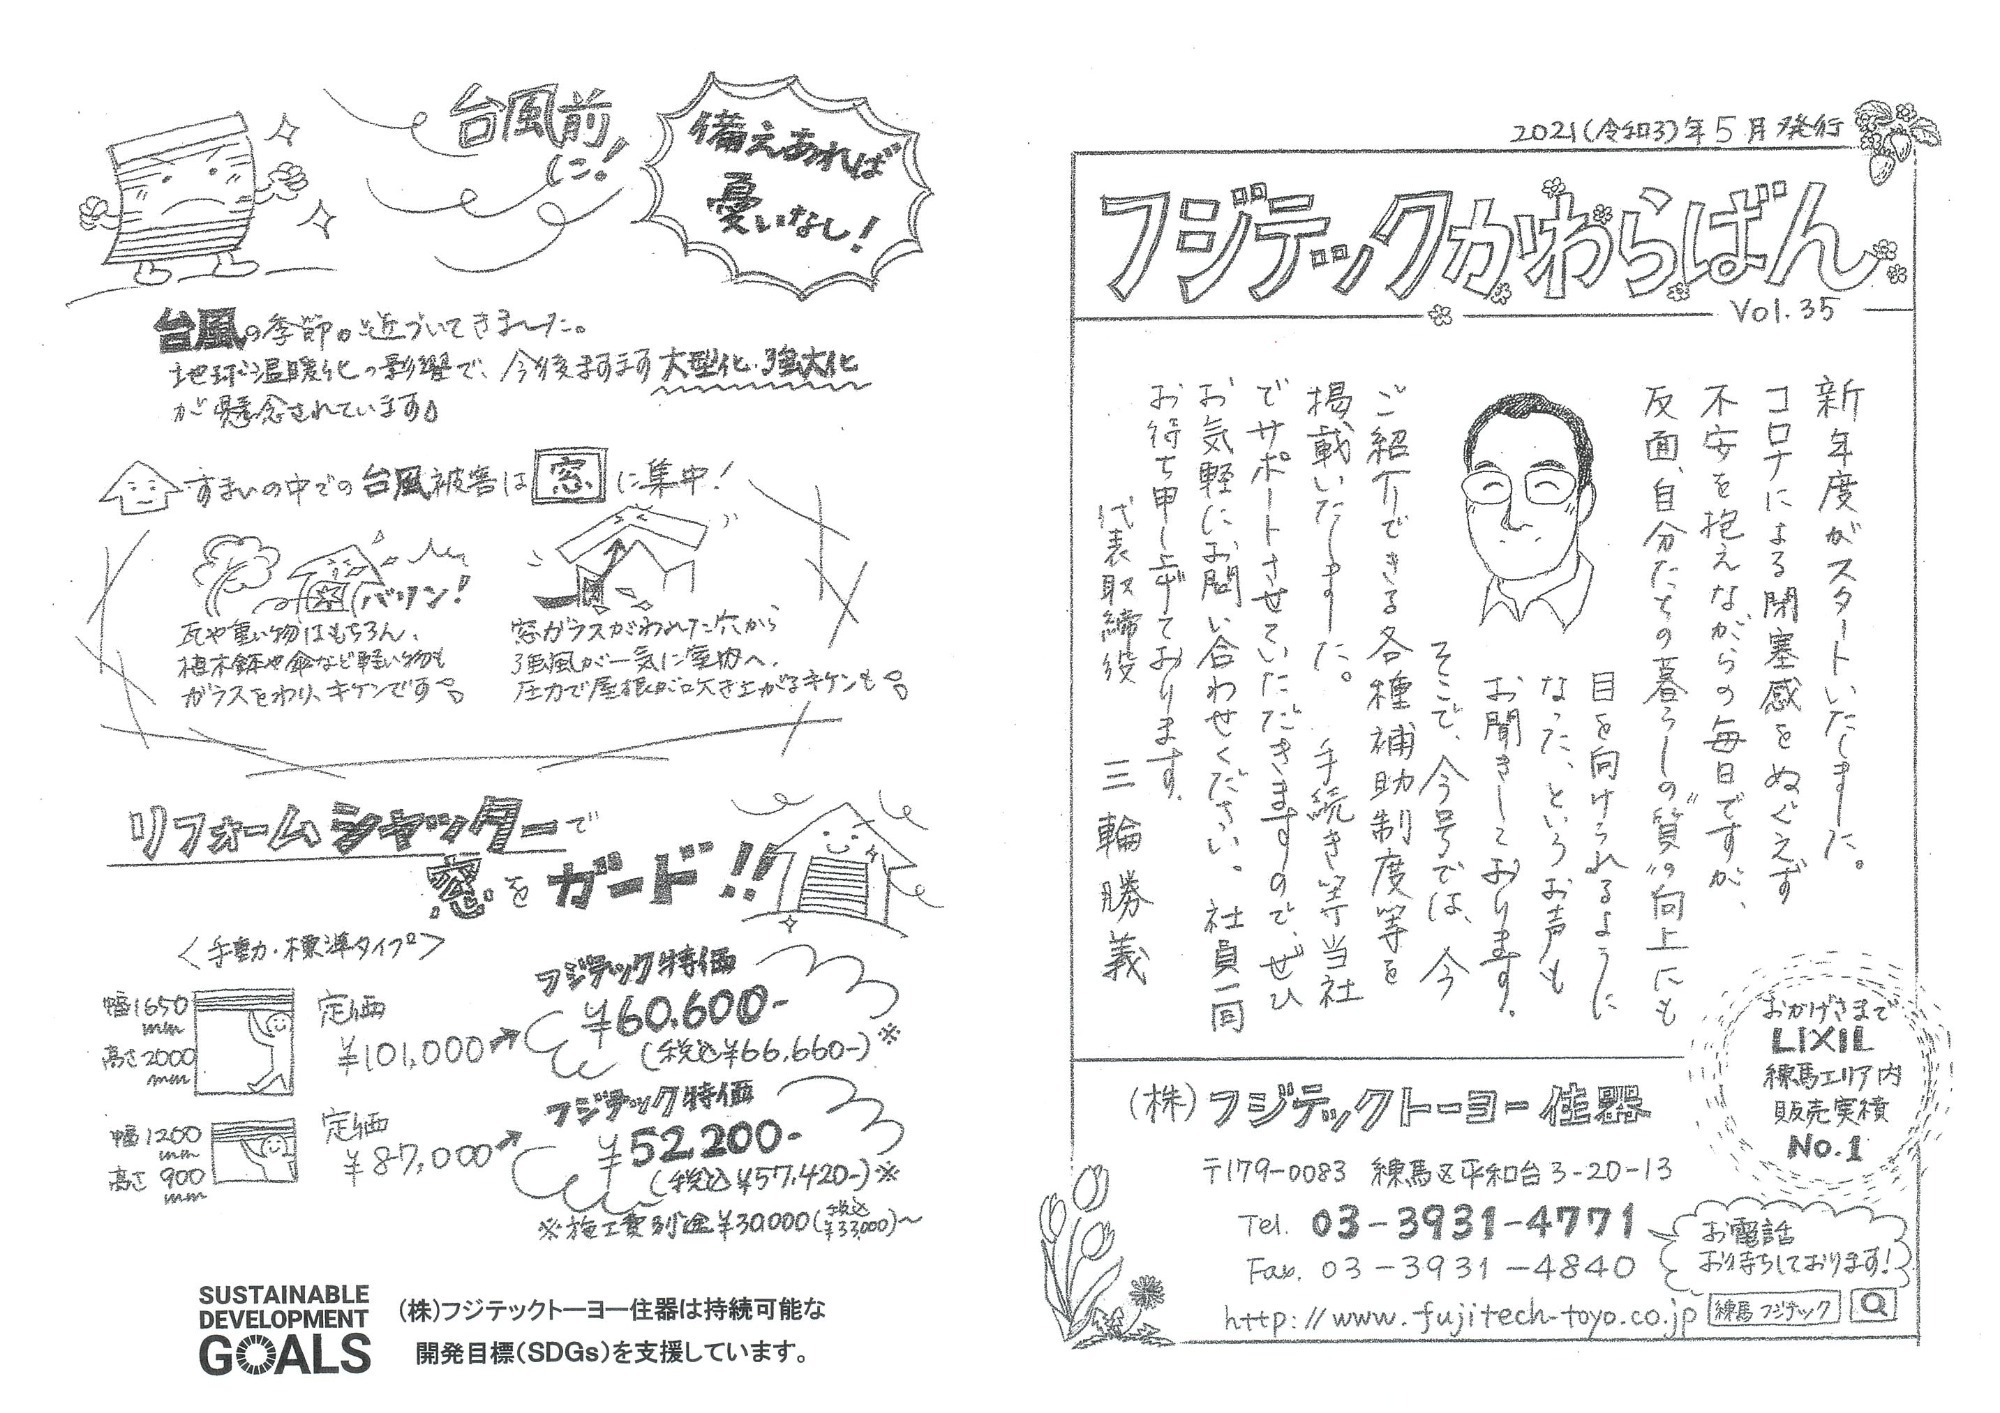 台風前に!
備えあれば
憂いなし!
台風の季節が近づいてきました。
地球温暖化の影響で、今後ますます大型化・強大化
が懸念されています。
すまいの中での台風被害は窓に集中!
バリン!
瓦や重い物はもちろん、
植木鉢や傘など軽い物も
ガラスをわり、キケンです。
窓ガラスがわれた穴から
強風が一気に室内へ。
圧力で屋根が吹き上がるキケンも。
リフォームシャッターで
窓をガード!!
<手動・標準タイプ>
幅1650
mm
高さ2000
mm
定価
¥101,000
フジテック特価
¥60,600-
(税込¥66,660-)※
幅1200
mm
高さ900
mm
定価
¥87,000
フジテック特価
¥52,200-
(税込¥57,420-)※
※施工費別途¥30,000(税込¥33,000)~
SUSTAINABLE
DEVELOPMENT
GOALS
(株)フジテックトーヨー住器は持続可能な
開発目標(SDGs)を支援しています。
2021(令和3)年5月発行
フジテックかわらばん
Vol.35
新年度がスタートいたしました。
コロナによる閉塞感をぬぐえず
不安を抱えながらの毎日ですが、
反面、自分たちの暮らしの"質"の向上にも
目を向けられるように
なった、というお声も
お聞きしております。
そこで、今号では、今
ご紹介できる各種補助制度等を
掲載いたしました。手続き等当社
でサポートさせていただきますので、ぜひ
お気軽にお問い合わせください。社員一同
お待ち申し上げております。
代表取締役 三輪勝義
おかげさまで
LIXIL
練馬エリア内
販売実績
No.1
(株)フジテックトーヨー住器
〒179-0083 練馬区平和台3-20-13
Tel. 03-3931-4771
Fax. 03-3931-4840
お電話
お待ちしております!
http://www.fujitech-toyo.co.jp 練馬 フジテック